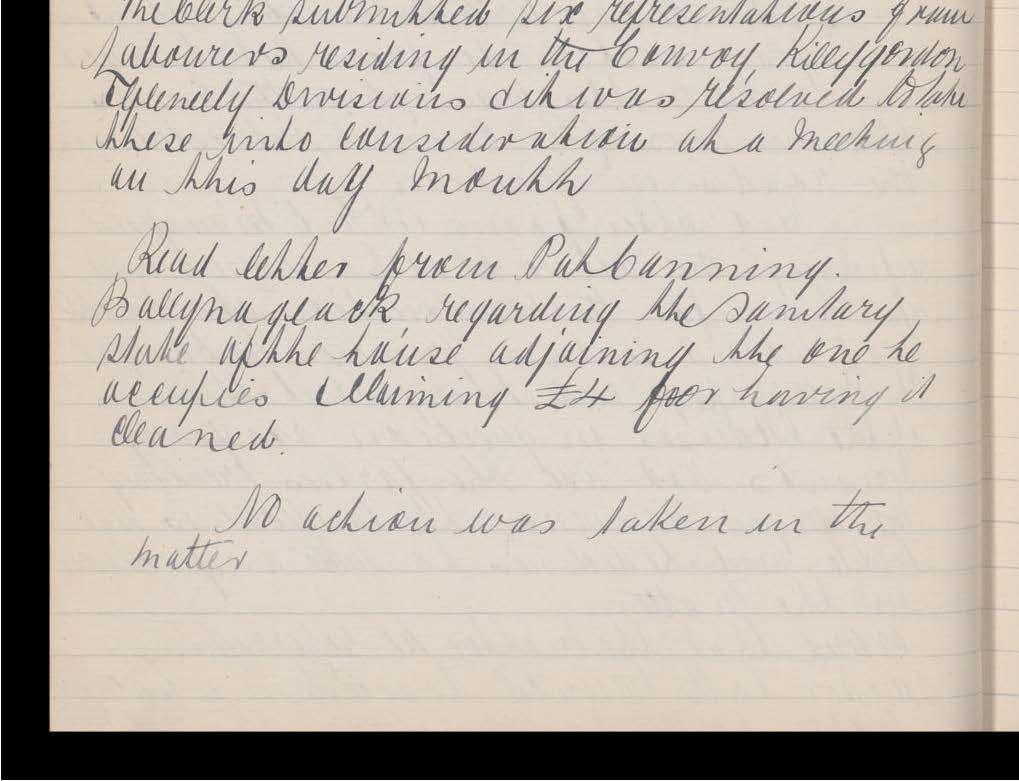 The Clerk submitted six representations from
Labourers residing in the Convoy, Killygordon
& Gleneely Divisions & it was resolved to take
these into consideration at a meeting
on this day month
Read letter from Pat Canning.
Ballynaglack, regarding the sanitary
state of the house adjoining the one he
occupies & claiming £4 for having it
cleaned.
No action was taken in the
matter